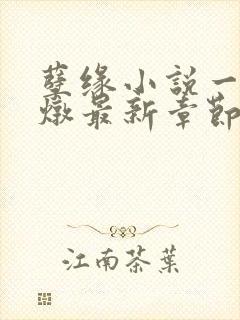 孽缘小説一
燉最新章節
江南茶葉